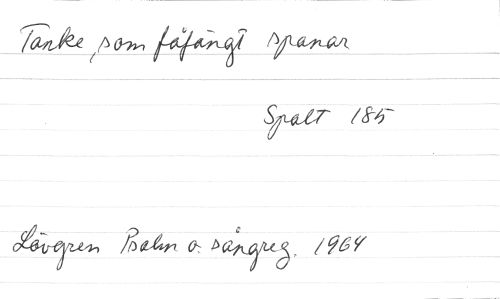 Tanke, som fåfängt spanar
Spalt 185
Lövgren Psalm o. sångreg. 1964